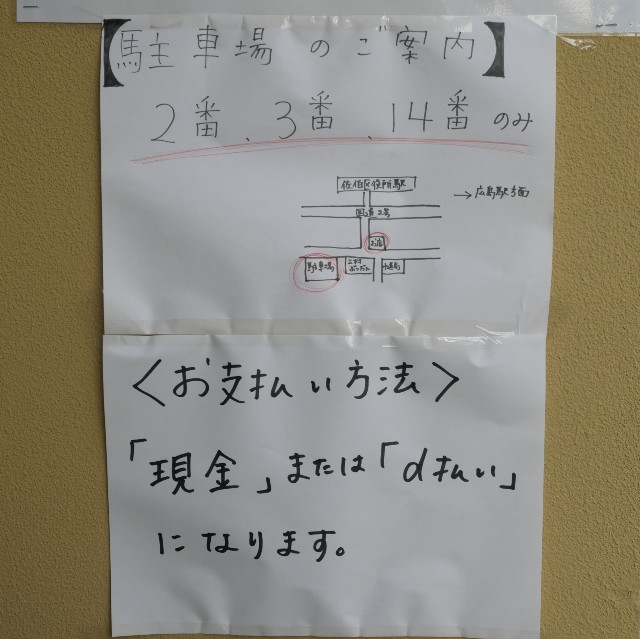 【駐車場のご案内】
2番、3番、14番のみ
佐伯区役所駅
→広島駅方面
国道2号
お店
駐車場
<お支払い方法>
「現金」または「d払い」
になります。